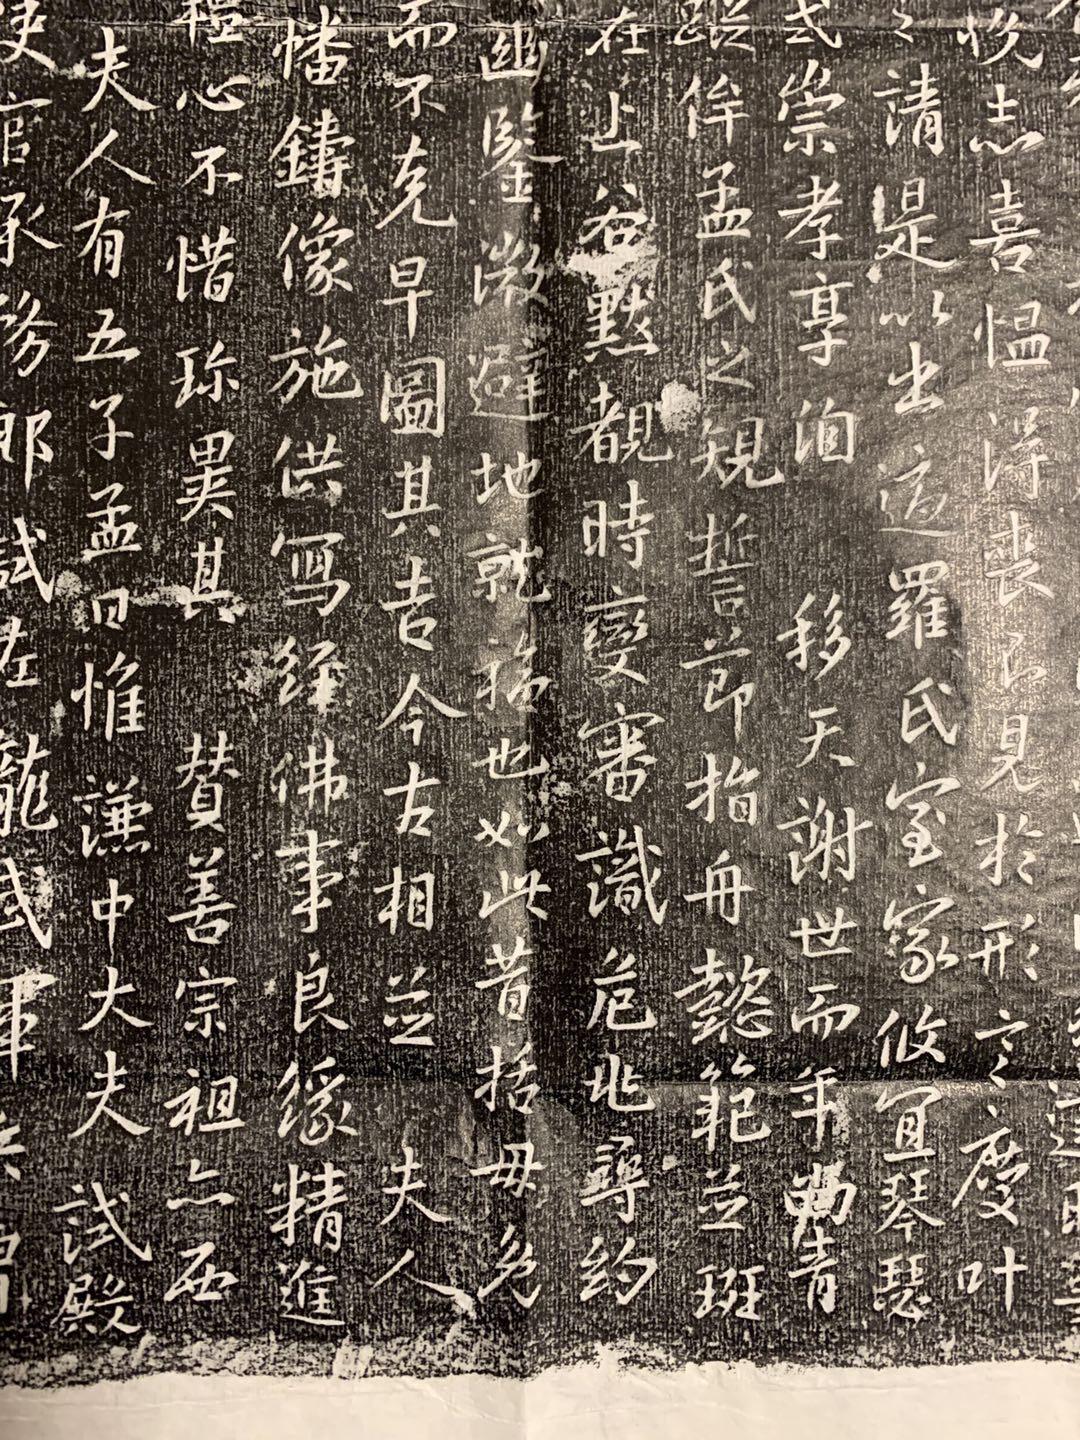 悅志喜慍淂喪局見於形言之度叶
之請是以出適羅氏室家攸宜琴瑟
式崇孝享洎移天謝世而年尚青
蹤侔孟氏之規誓節指舟懿範並班
在上谷黙覩時變審識危非尋約
幽鑒微避地就也如此昔括毋免
而不克早圖其吉今古相並夫人
幡鑄像施供寫經佛事良緣精進
種心不惜珎異其贊善宗祖亦西
夫人有五子孟曰惟謙中大夫試殿
使官承務郎試左武軍